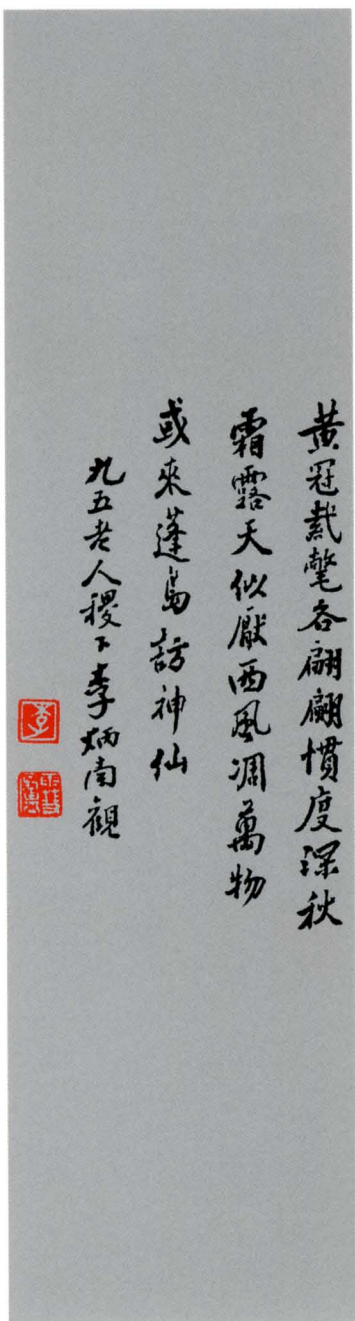 黃冠氅各翩翩慣度深秋
霜露天似厭西風凋萬物
或來蓬島訪神仙
九五老人稷下李炳南觀
李
雪廬